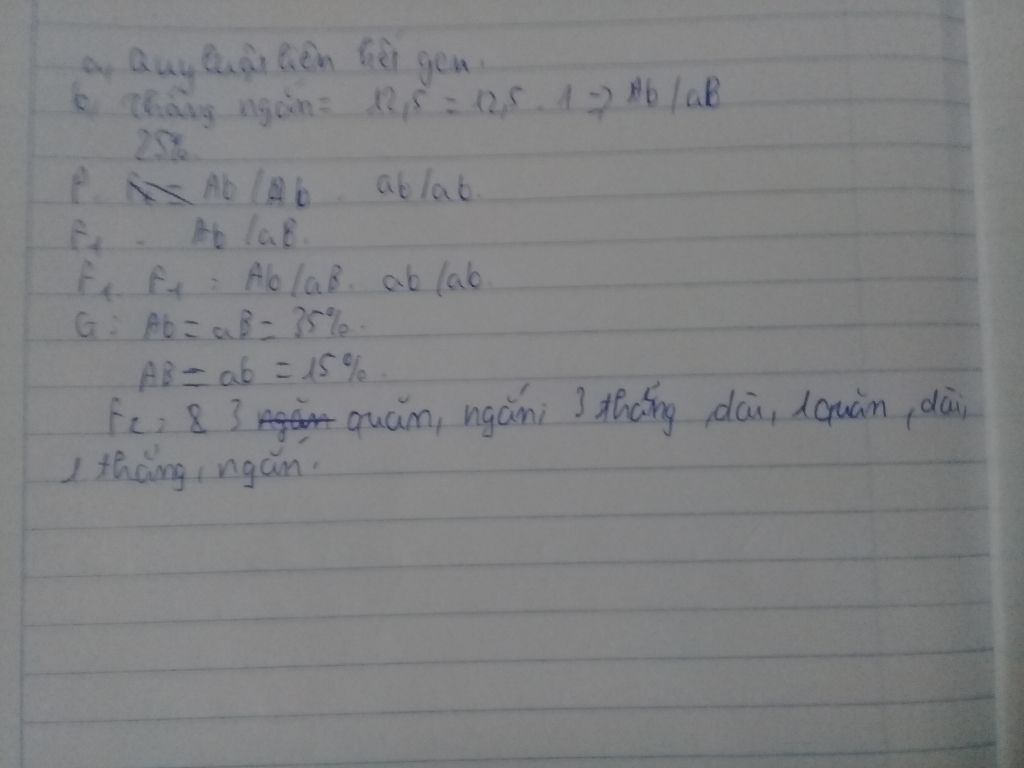 a, Quy luật liên kết gen.
b, thẳng ngắn = 12,5 = 12,5 . 1 => Ab/aB
25%
P. Ab/Ab . ab/ab.
F1 . Ab/aB.
F1 . F1 : Ab/aB . ab/ab.
G: Ab = aB = 35%.
AB = ab = 15%.
F2: 8 3 ngắn quăn, ngắn, 3 thẳng, dài, 1 quăn, dài,
1 thẳng, ngắn.